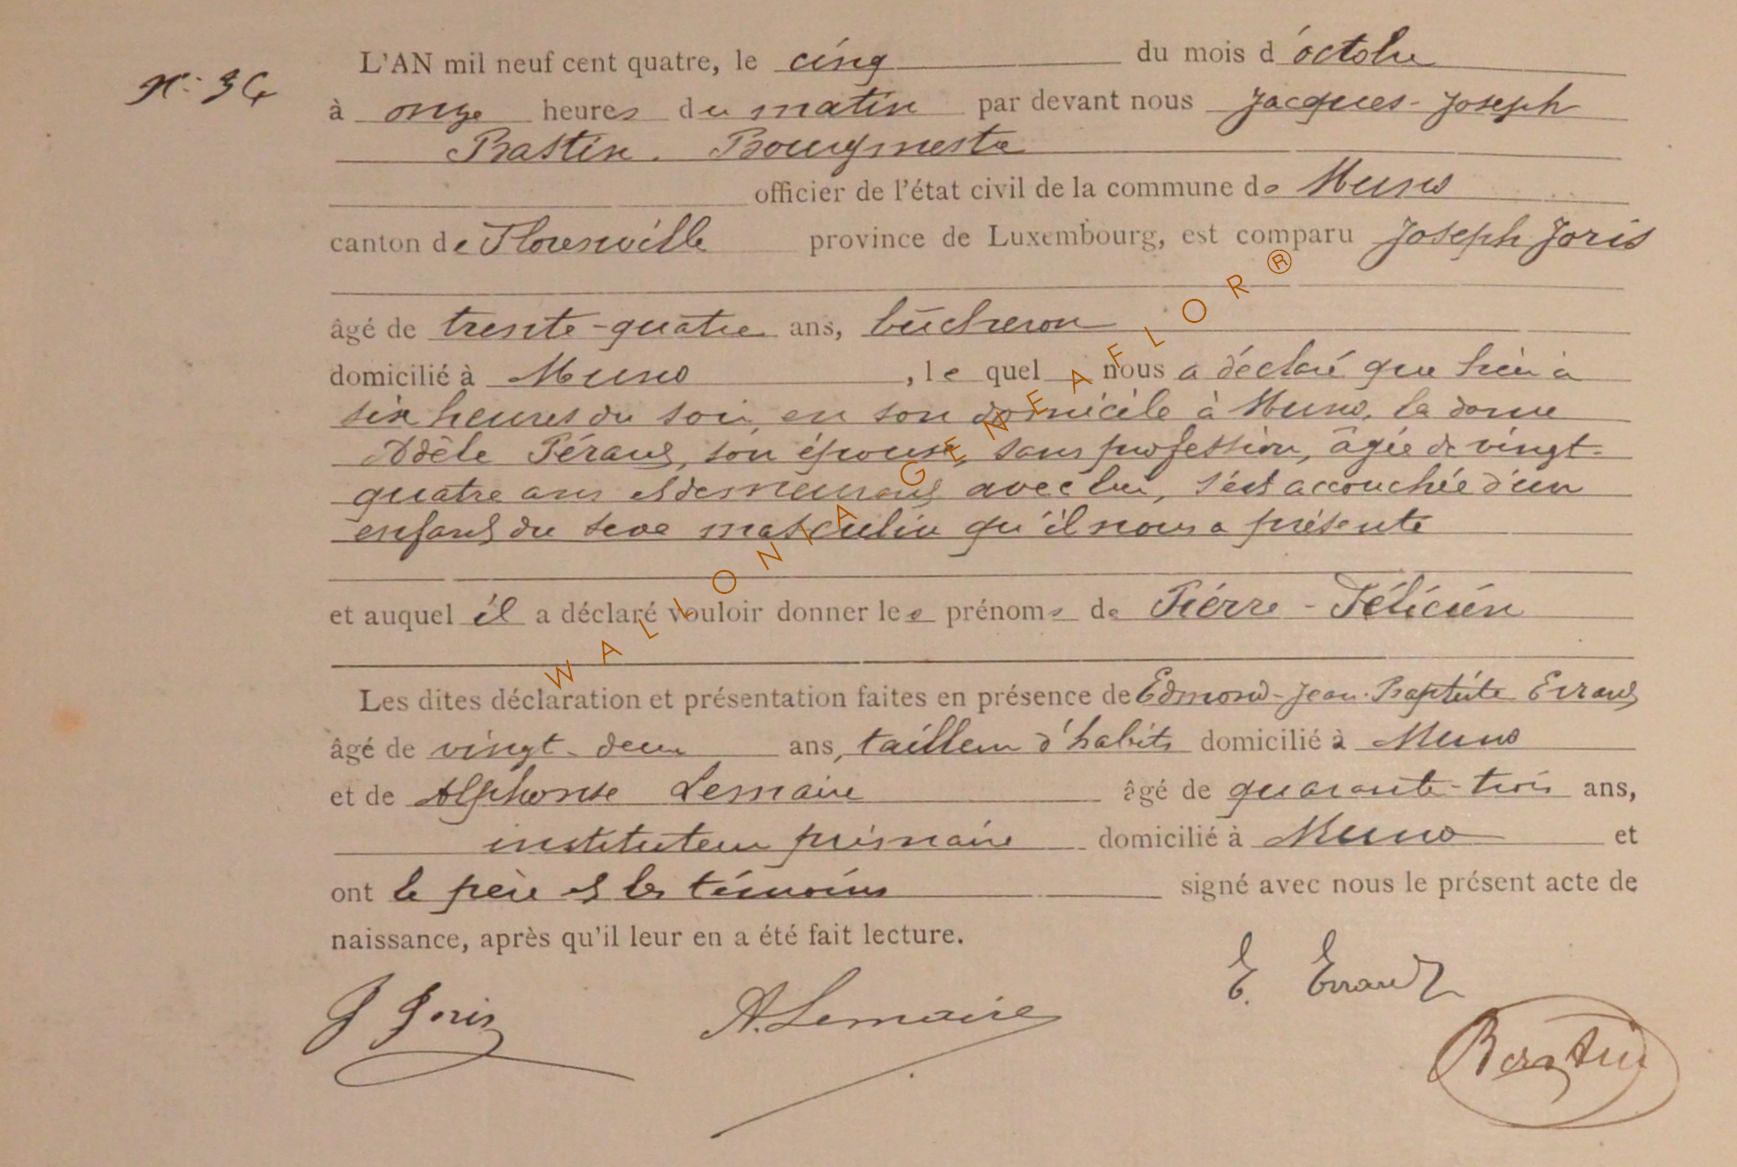 N° 34
L'AN mil neuf cent quatre, le cinq du mois d'octobre
à onze heures du matin par devant nous Jacques-Joseph
Bastin. Bourgmestre
officier de l'état civil de la commune de Muno
canton de Florenville province de Luxembourg, est comparu Joseph Joris
âgé de trente-quatre ans, bûcheron
domicilié à Muno, le quel nous a déclaré que hier à
six heures du soir, en son domicile à Muno, la dame
Adèle Féraud, son épouse, sans profession, âgée de vingt-
quatre ans et demeurant avec lui, s'est accouchée d'un
enfant du sexe masculin qu'il nous a présenté
et auquel il a déclaré vouloir donner les prénoms de Pierre-Félicien
Les dites déclaration et présentation faites en présence de Edmond-Jean-Baptiste Errard
âgé de vingt-deux ans, tailleur d'habits domicilié à Muno
et de Alphonse Lemaire âgé de quarante-trois ans,
instituteur primaire domicilié à Muno et
ont le père et les témoins signé avec nous le présent acte de
naissance, après qu'il leur en a été fait lecture.
J Joris A. Lemaire E. Errard
Bastin
WALLONIA GENEAFLOR®